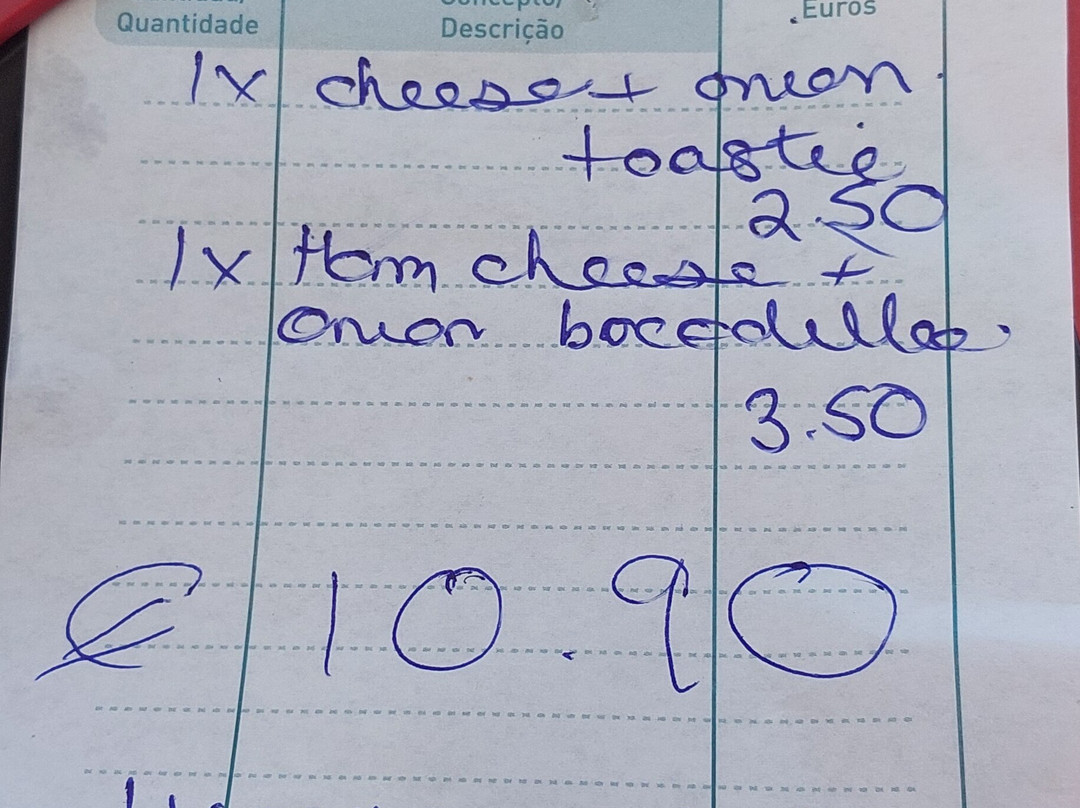 Quantidade
Descrição
Euros
1x cheese + onion
toastie
2.50
1x Ham cheese +
onion bocadillo.
3.50
€ 10.90